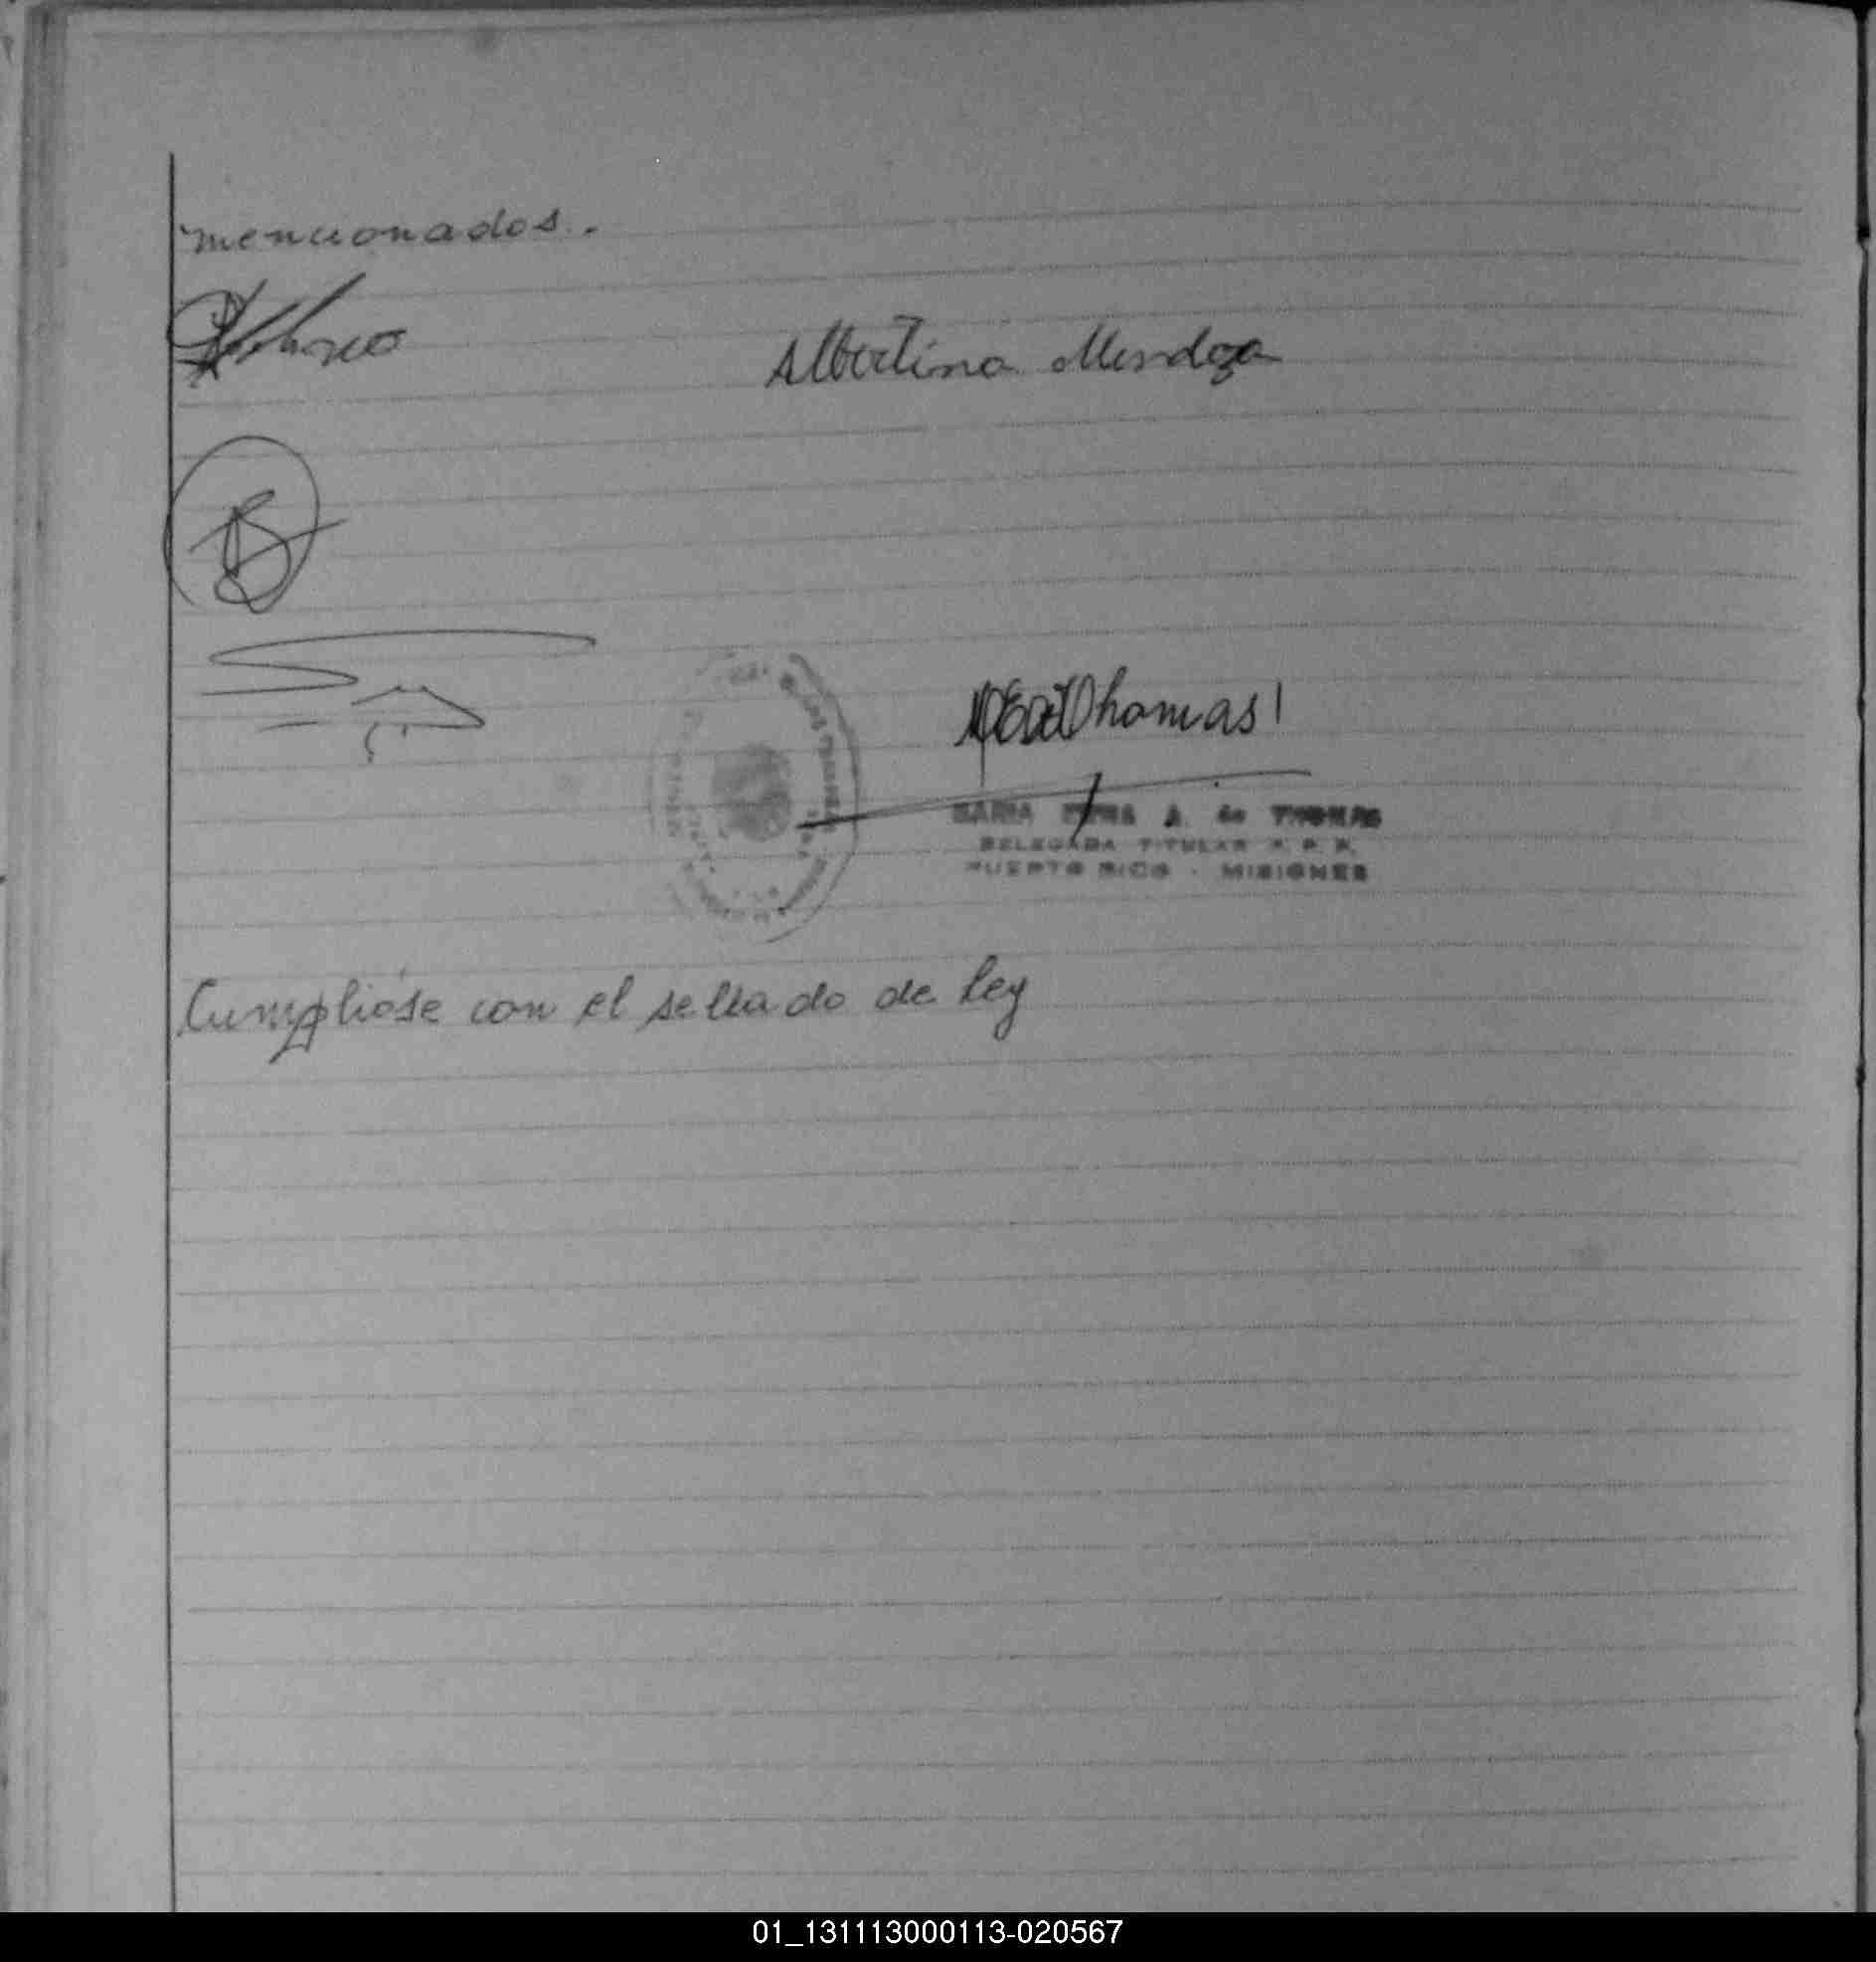 mencionados.
Albertina Mendoza
Thomas
MARIA A. de THOMAS
DELEGADA TITULAR R. P. P.
PUERTO RICO - MISIONES
Cumplióse con el sellado de Ley
01_131113000113-020567